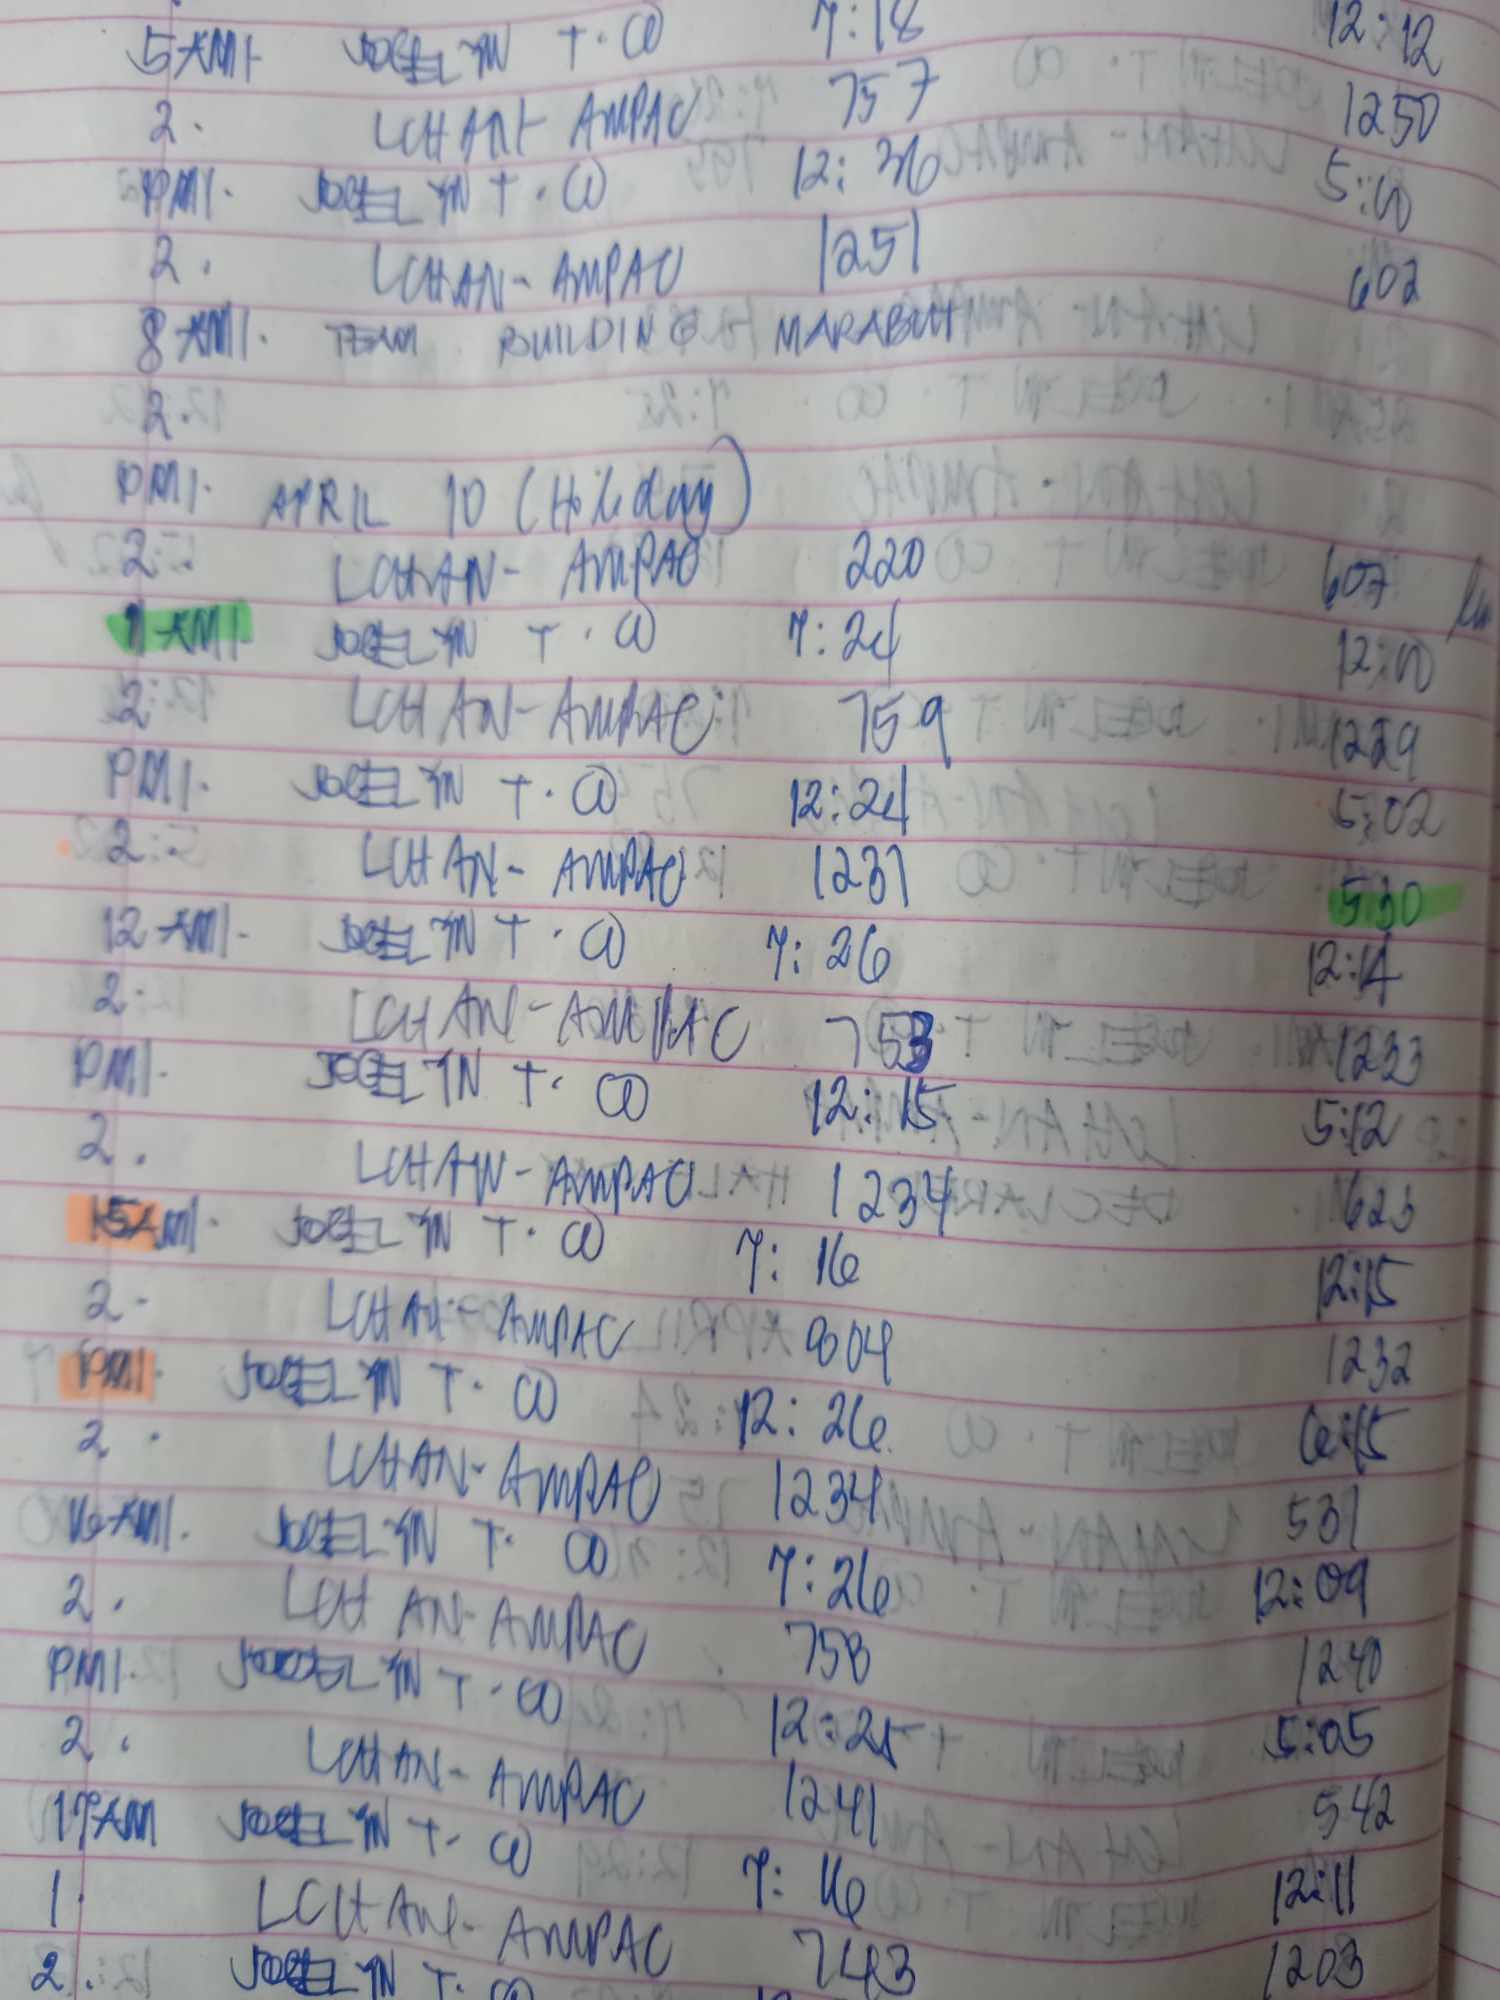 5 AM1 JOCELYN T. CO 7:18 12:12
2. LCHAN-AMPAC 757 1250
PM1. JOCELYN T. CO 12:36 5:10
2. LCHAN-AMPAC 1251 602
8 AM1. TEAM BUILDING MARABUT
2.
PM1. APRIL 10 (Holiday)
2. LCHAN-AMPAC 220 607
11 AM1. JOCELYN T. CO 7:24 12:10
2. LCHAN-AMPAC 759 1229
PM1. JOCELYN T. CO 12:24 5:02
2. LCHAN-AMPAC 1231 530
12 AM1. JOCELYN T. CO 7:26 12:14
2. LCHAN-AMPAC 753 1233
PM1. JOCELYN T. CO 12:15 5:12
2. LCHAN-AMPAC 1234 623
15 AM1. JOCELYN T. CO 7:16 12:15
2. LCHAN-AMPAC 804 1232
PM1. JOCELYN T. CO 12:26 6:15
2. LCHAN-AMPAC 1234 531
16 AM1. JOCELYN T. CO 7:26 12:09
2. LCHAN-AMPAC 758 1240
PM1. JOCELYN T. CO 12:25 5:05
2. LCHAN-AMPAC 1241 542
17 AM JOCELYN T. CO 7:16 12:11
1. LCHAN-AMPAC 743 1203
2. JOCELYN T. CO